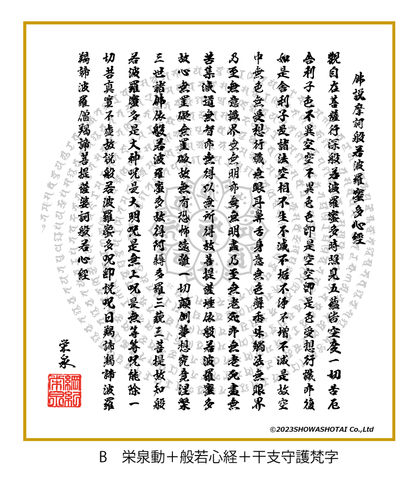 佛說摩訶般若波羅蜜多心經
觀自在菩薩行深般若波羅蜜多時照見五蘊皆空度一切苦厄
舍利子色不異空空不異色色即是空空即是色受想行識亦復
如是舍利子是諸法空相不生不滅不垢不淨不增不減是故空
中無色無受想行識無眼耳鼻舌身意無色聲香味觸法無眼界
乃至無意識界無無明亦無無明盡乃至無老死亦無老死盡無
苦集滅道無智亦無得以無所得故菩提薩埵依般若波羅蜜多
故心無罣礙無罣礙故無有恐怖遠離一切顛倒夢想究竟涅槃
三世諸佛依般若波羅蜜多故得阿耨多羅三藐三菩提故知般
若波羅蜜多是大神呪是大明呪是無上呪是無等等呪能除一
切苦真實不虛故說般若波羅蜜多呪即說呪曰羯諦羯諦波羅
羯諦波羅僧羯諦菩提薩婆訶般若心經
栄泉
©2023SHOWASHOTAI Co.,Ltd
B 栄泉動＋般若心経＋干支守護梵字